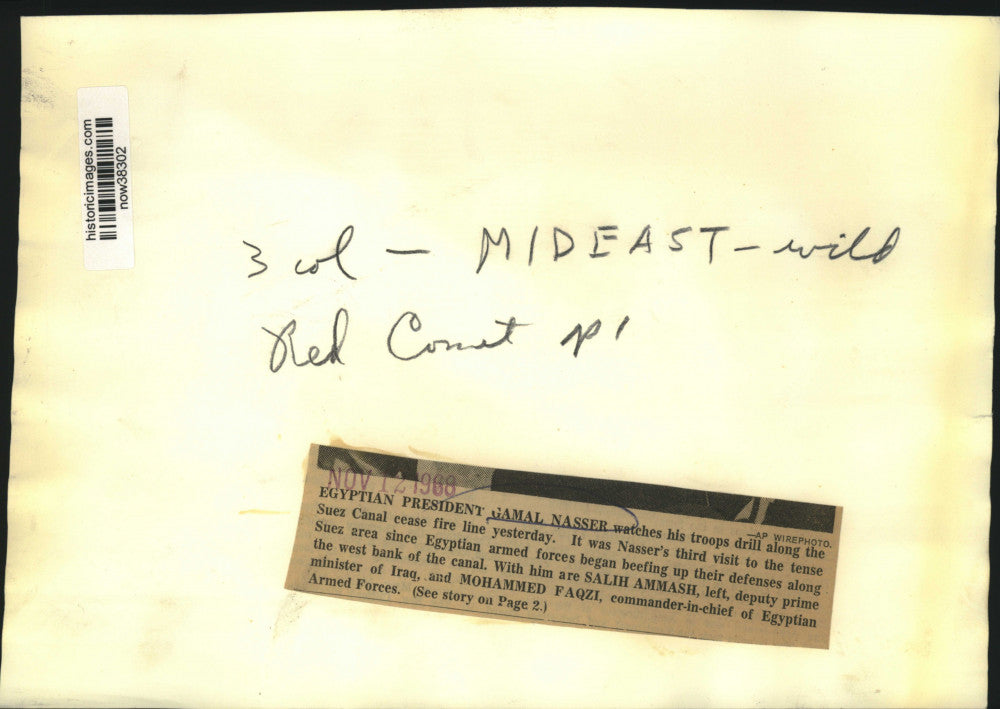 historicimages.com
now38302
3 col — MIDEAST — wild
Red Comet p1
NOV 12 1968
—AP WIREPHOTO.
EGYPTIAN PRESIDENT GAMAL NASSER watches his troops drill along the
Suez Canal cease fire line yesterday. It was Nasser's third visit to the tense
Suez area since Egyptian armed forces began beefing up their defenses along
the west bank of the canal. With him are SALIH AMMASH, left, deputy prime
minister of Iraq, and MOHAMMED FAQZI, commander-in-chief of Egyptian
Armed Forces. (See story on Page 2.)